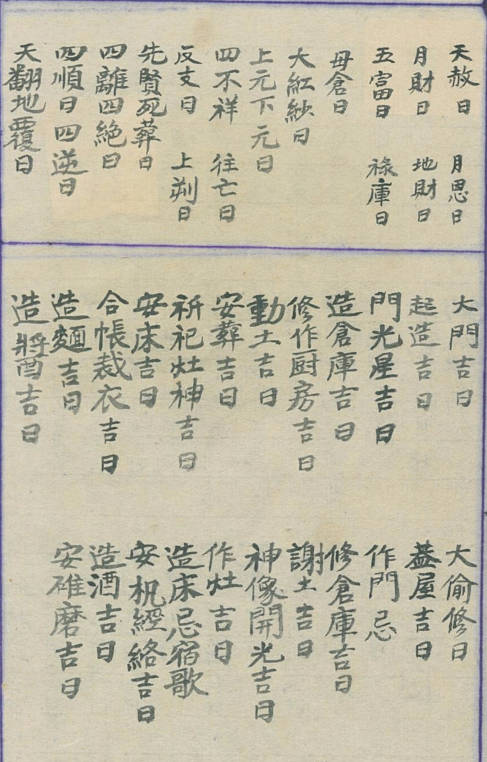 天赦日 月恩日
月財日 地財日
五富日 祿庫日
母倉日
大紅紗日
上元下元日
四不祥 往亡日
反支日 上朔日
先賢死葬日
四離四絶日
四順日四逆日
天翻地覆日
大門吉日 大偷修日
起造吉日 蓋屋吉日
門光星吉日 作門忌
造倉庫吉日 修倉庫吉日
修作厨房吉日 謝土吉日
動土吉日 神像開光吉日
安葬吉日 作灶吉日
祈祀灶神吉日 造床忌宿歌
安床吉日 安机經絡吉日
合帳裁衣吉日 造酒吉日
造麵吉日 安碓磨吉日
造醬吉日